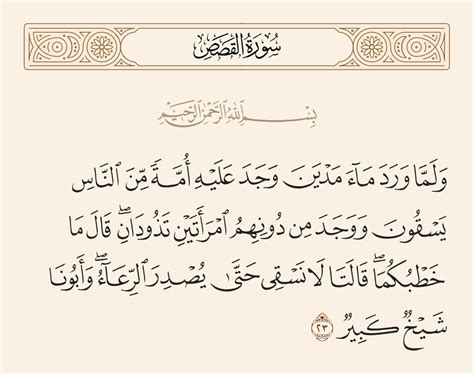 سُورَةُ القَصَصِ
بِسْمِ ٱللَّهِ ٱلرَّحْمَٰنِ ٱلرَّحِيمِ
وَلَمَّا وَرَدَ مَآءَ مَدْيَنَ وَجَدَ عَلَيْهِ أُمَّةً مِّنَ ٱلنَّاسِ
يَسْقُونَ وَوَجَدَ مِن دُونِهِمُ ٱمْرَأَتَيْنِ تَذُودَانِۖ قَالَ مَا
خَطْبُكُمَاۖ قَالَتَا لَا نَسْقِى حَتَّىٰ يُصْدِرَ ٱلرِّعَآءُۖ وَأَبُونَا
شَيْخٌ كَبِيرٌ ٢٣